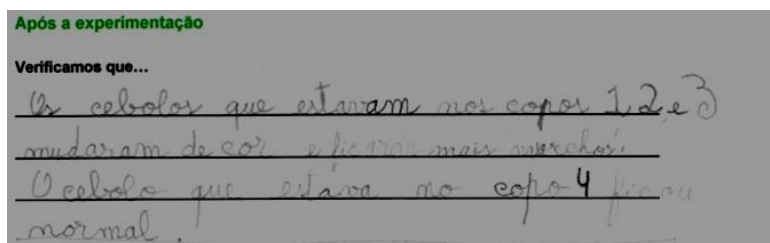 Após a experimentação
Verificamos que...
Os cebolos que estavam nos copos 1, 2 e 3
mudaram de cor e ficaram mais murchos.
O cebolo que estava no copo 4 ficou
normal.